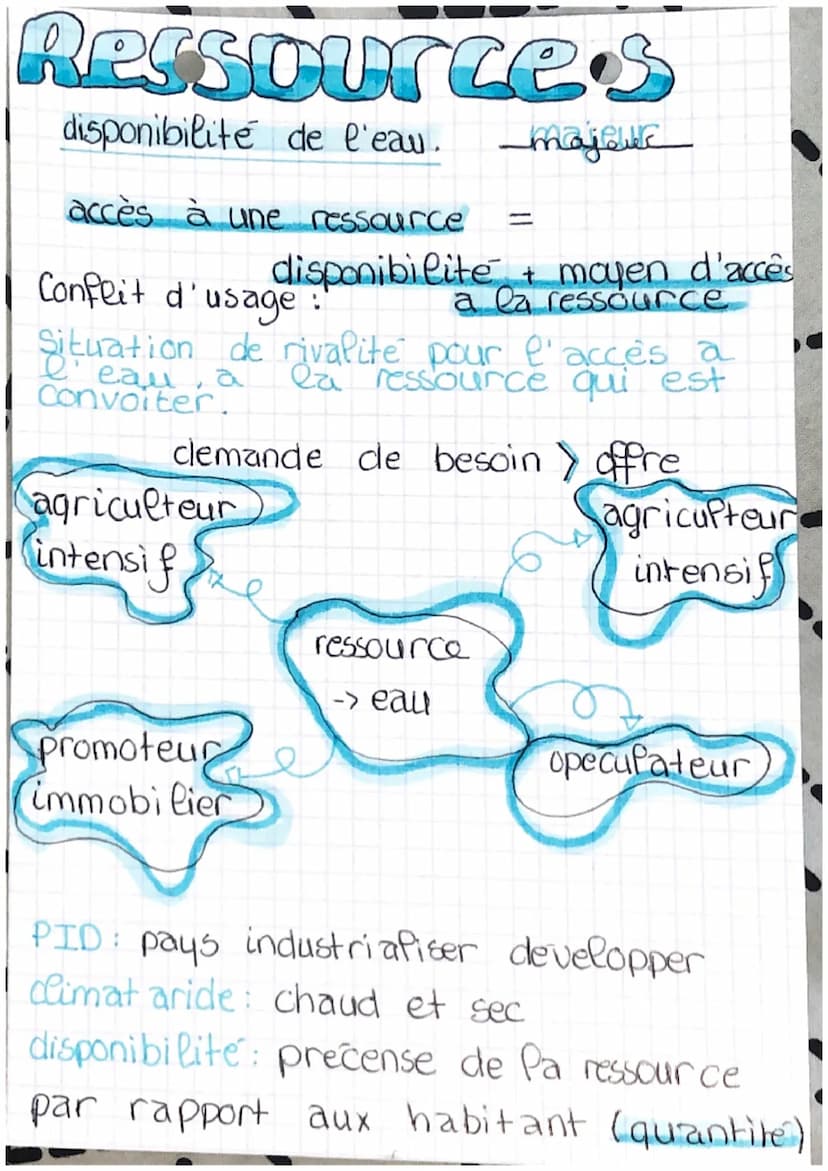 Ressources
disponibilité de l'eau. majeur
accès à une ressource =
disponibilité + moyen d'accès
a la ressource
Conflit d'usage :
Situation de rivalité pour l'accès a
l'eau, a la ressource qui est
convoiter.
demande de besoin > offre
agriculteur
intensif
agriculteur
intensif
ressource
-> eau
promoteur
immobilier
opeculateur
PID: pays industrialiser developper
climat aride: chaud et sec
disponibilité: précense de la ressource
par rapport aux habitant (quantité)